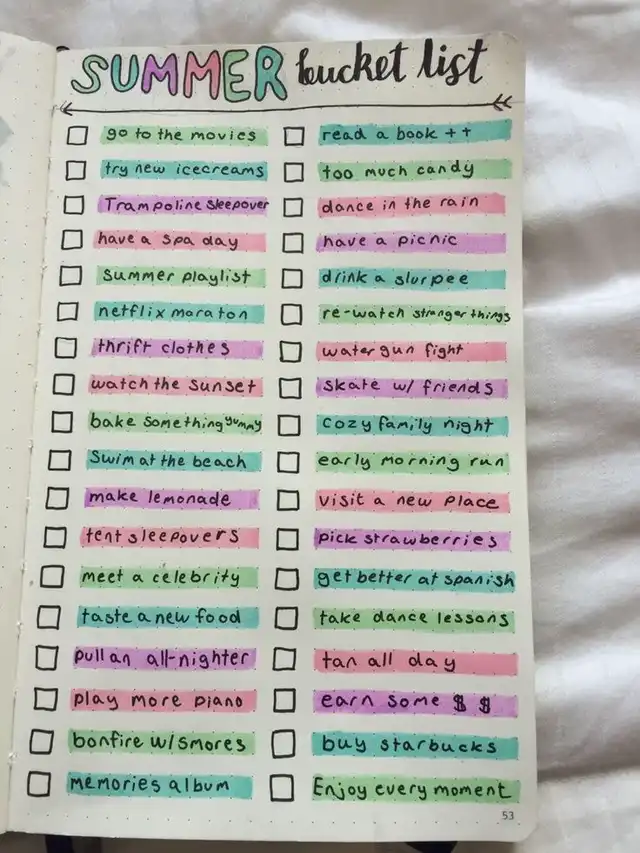 SUMMER bucket list
go to the movies
try new icecreams
Trampoline sleepover
have a spa day
summer playlist
netflix maraton
thrift clothes
watch the sunset
bake something yummy
swim at the beach
make lemonade
tent sleepovers
meet a celebrity
taste a new food
pull an all-nighter
play more piano
bonfire w/smores
memories album
read a book ++
too much candy
dance in the rain
have a picnic
drink a slurpee
re-watch stranger things
water gun fight
skate w/ friends
cozy family night
early morning run
visit a new place
pick strawberries
get better at spanish
take dance lessons
tan all day
earn some $ $
buy starbucks
Enjoy every moment
53